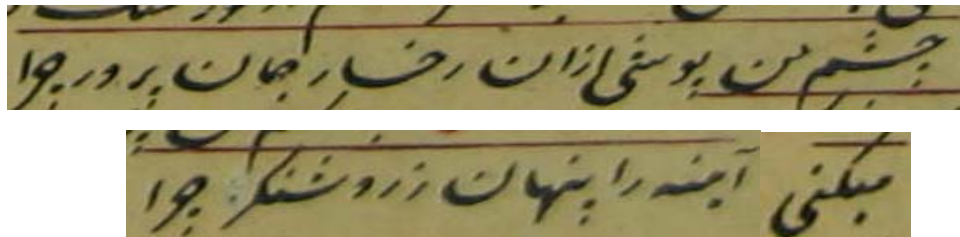 چشم من پوشی ازان رخسار جهان پرور چرا
میکنی آینه را پنهان ز روشنگر چرا